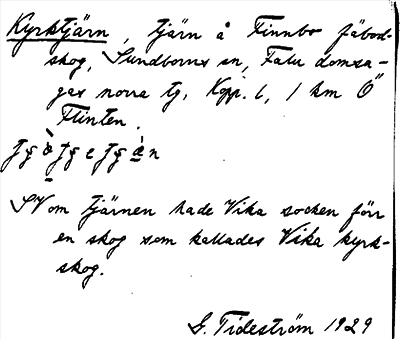 Kyrktjärn, tjärn å Finnbo fäbod-
skog, Sundborns sn, Falu domsa-
gas norra tg, Kopp. l, 1 km Ö
Flinten.
SV om tjärnen hade Vika socken förr
en skog som kallades Vika kyrk-
skog.
G. Tideström 1929